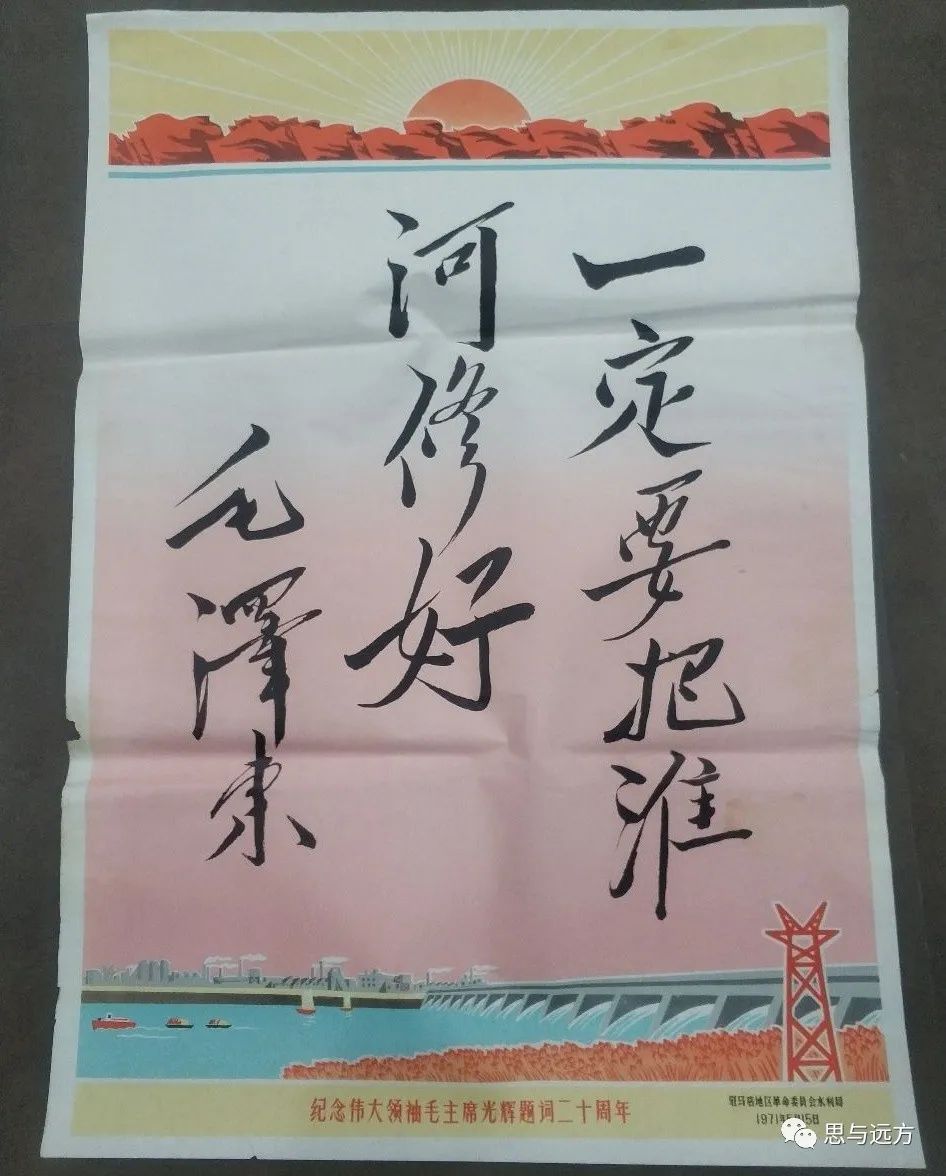 一定要把淮
河修好
毛澤东
纪念伟大领袖毛主席光辉题词二十周年
驻马店地区革命委员会水利局
1971年5月15日
思与远方